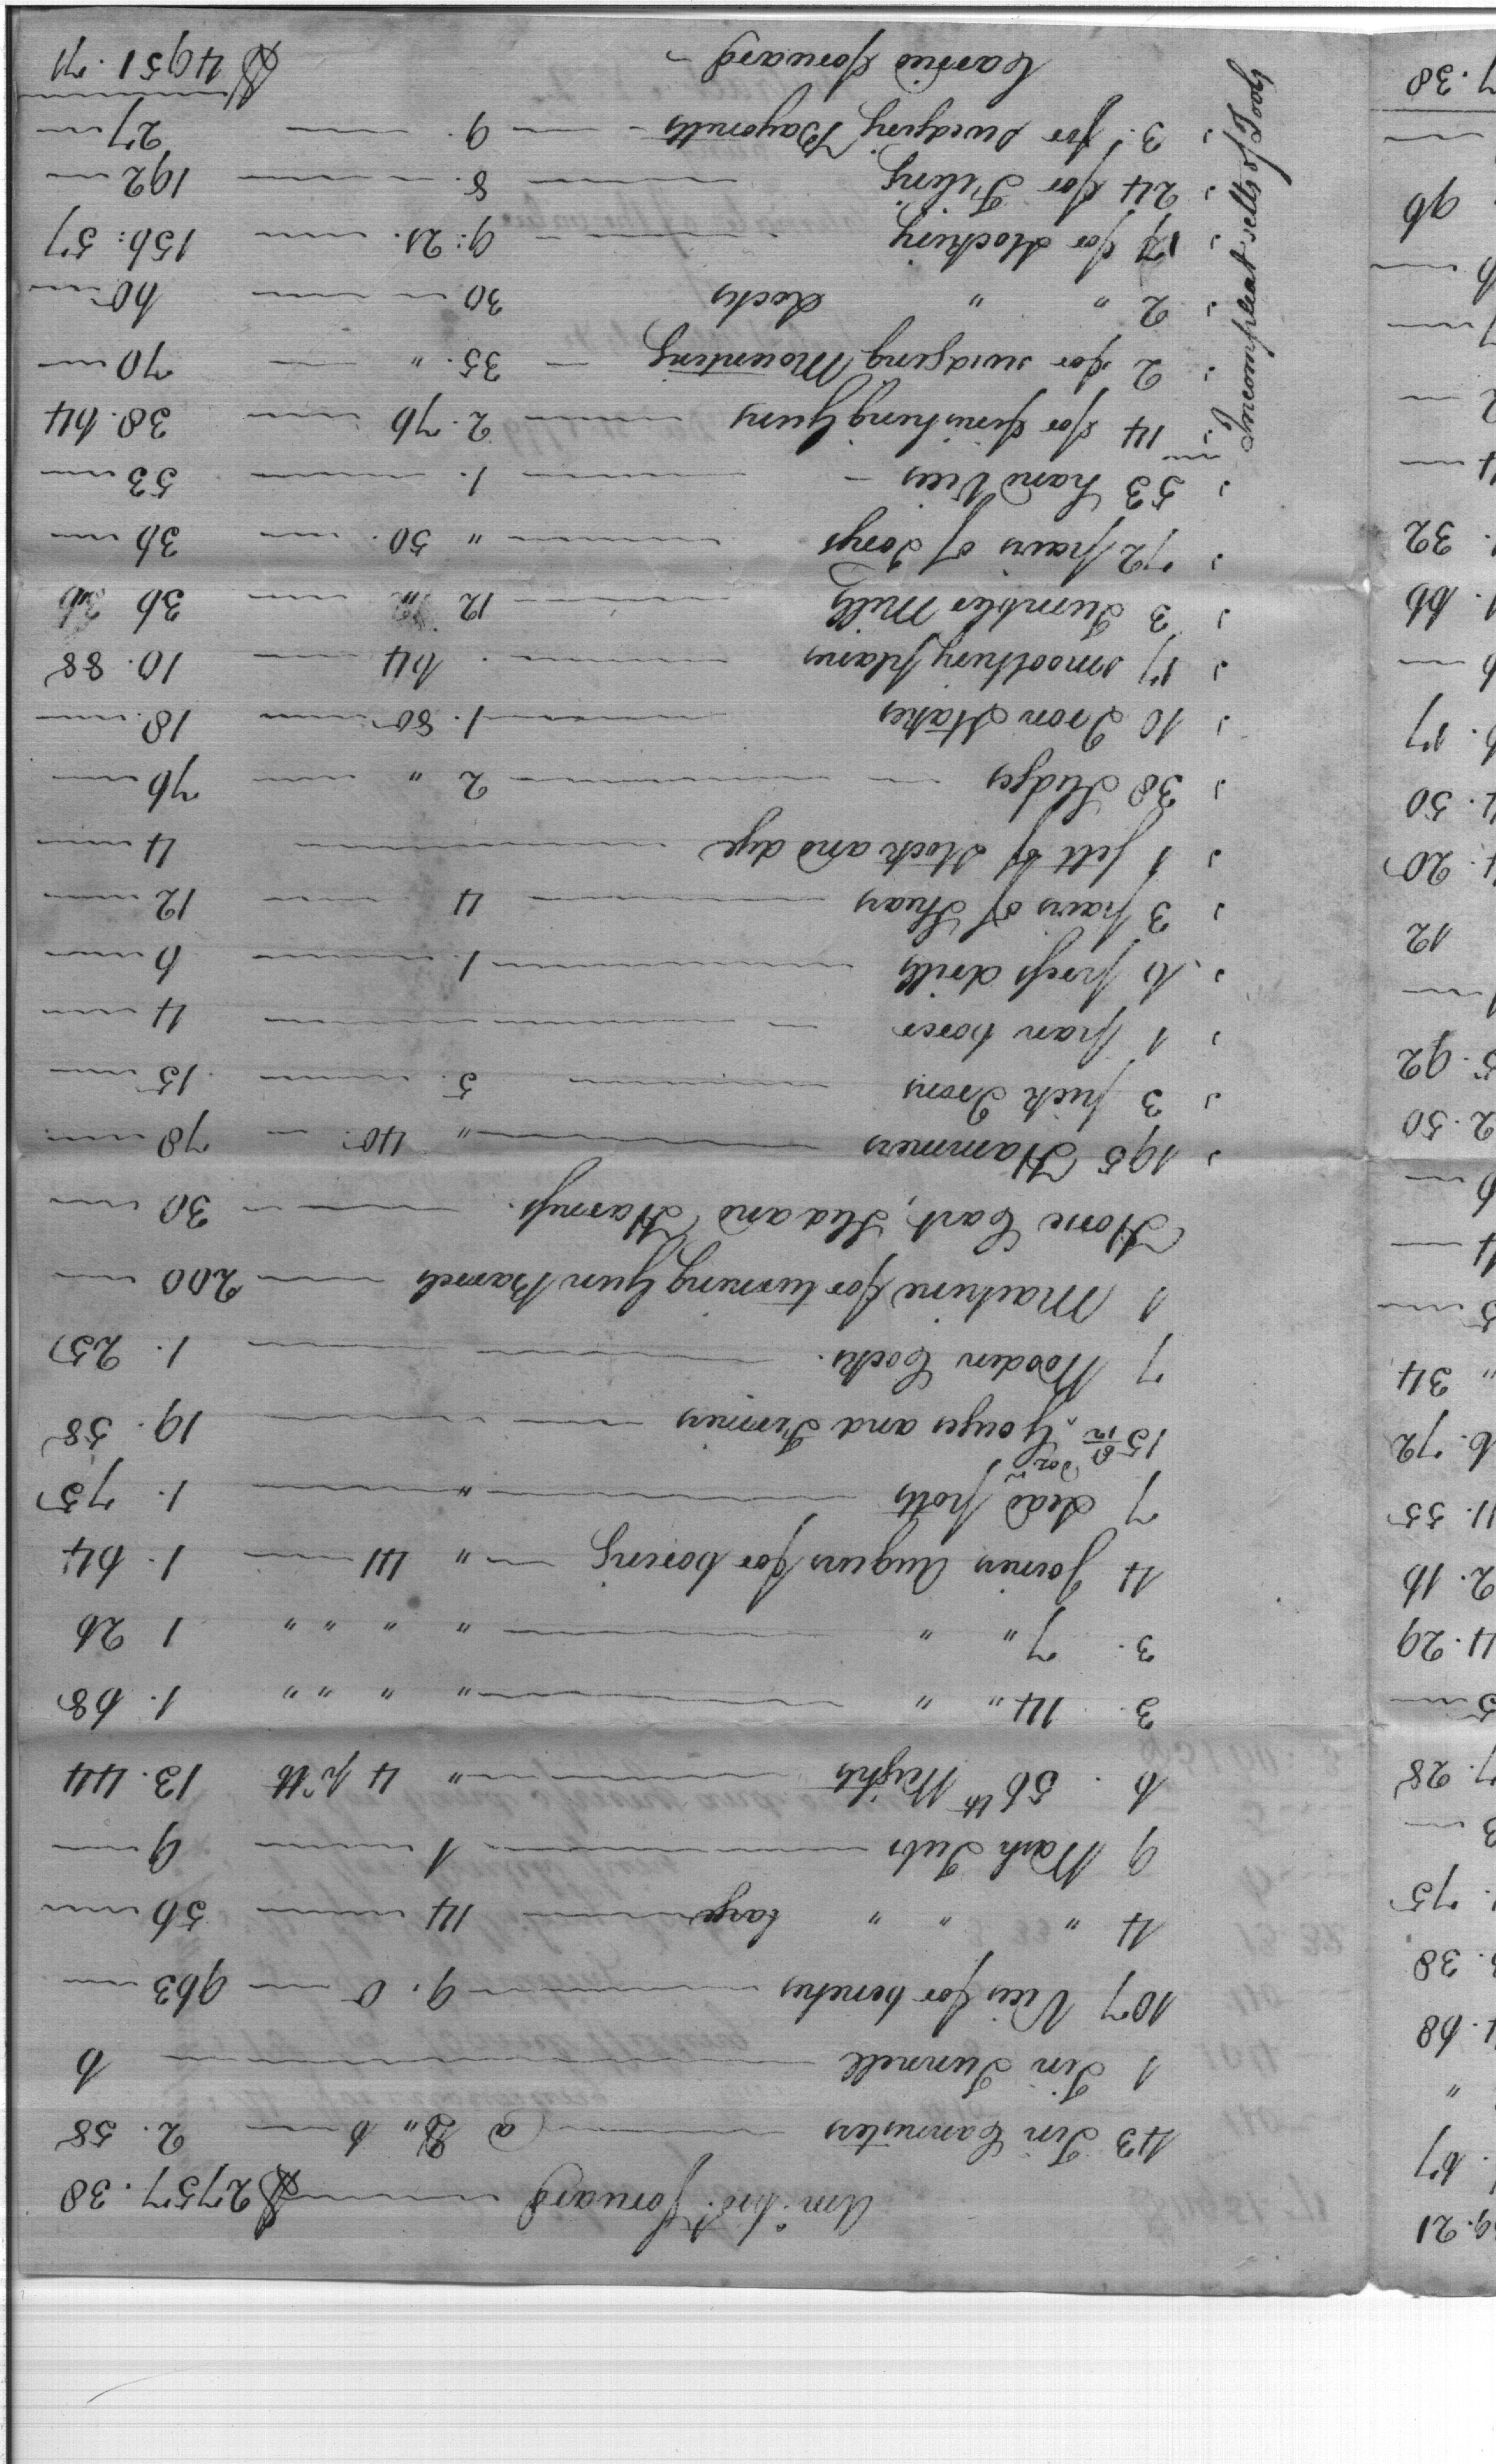 Amt. brot. forward $2757.38
43 Tin Cannisters @ $ „ 6 2.58
1 Tin Tunnell 6
107 Vices for benches 9. 0 963
4 " " " large 14 56
9 Wash Tubs 1 9
6. 56 lb Weights " 4 pr lb 13.44
3. 14 " " " " " " 1.68
3. 7 " " " " " " 1 26
4 Joiners Augurs for boring " 41 1.64
7 Lead potts " 1.75
15 8/12 Doz. Gouges and Firmers 19.58
7 Wooden Cocks. 1.25
1 Machine for turning Gun Barrels 200
Horse Cart, Sled and Harness. 30
195 Hammers " 40 78
3 pick Irons 5 15
1 pan borer 4
6 press drills 1. 6
3 pairs of Shears 4 12
1 sett of Stock and dye 4
38 Sledges 2 " 76
10 Iron Stakes 1.80 18
17 smoothing planes 64 10.88
3 Tumbler Mills 12 36
72 pairs of Tongs " 50 36
53 hand Vices 1. 53
Incompleat setts of Tools
14 for finishing Guns 2.76 38.64
2 for swedging Mounting 35. " 70
2 " " Locks 30 60
17 for Stocking 9:21. 156:57
24 for Filing 8. 192
3. for swedging Bayonetts 9. 27
Carried forward $4951.71
9.21
67
"
68
38
75
3
28
5
4.29
2.16
11.55
6.72
" 34
5
4
6
2.50
5.92
12
20
50
17
6
66
32
4
2
96
38